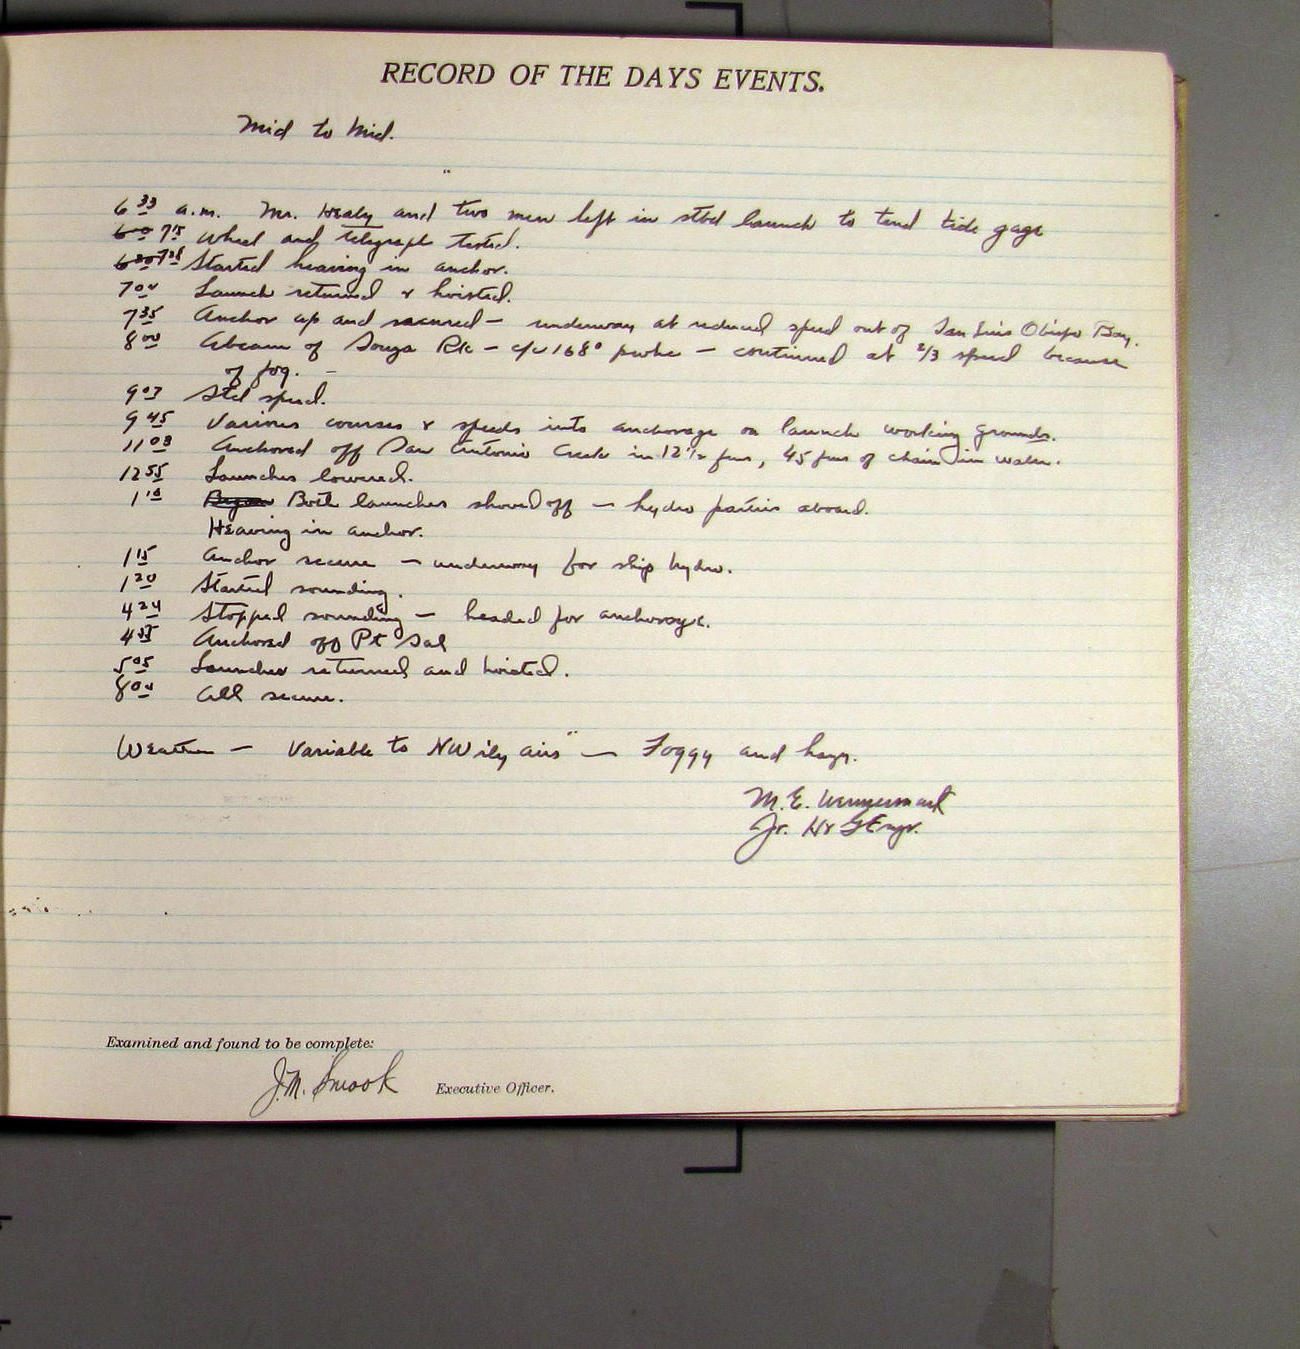 RECORD OF THE DAYS EVENTS.
Mid to Mid.
6 33 a.m. Mr. Healy and two men left in stbd launch to tend tide gage
6 00 7 15 Wheel and telegraph tested.
6 30 7 28 Started heaving in anchor.
7 04 Launch returned & hoisted.
7 35 Anchor up and secured — underway at reduced speed out of San Luis Obispo Bay.
8 00 Abeam of Souza Rk — c/c 168° pwhc — continued at 2/3 speed because
of fog. —
9 07 Std speed.
9 45 Various courses & speeds into anchorage on launch working grounds.
11 08 Anchored off San Antonio Creek in 12 1/2 fms, 45 fms of chain in water.
12 55 Launches lowered.
1 10 Began Both launches shoved off — hydro parties aboard.
Heaving in anchor.
1 15 Anchor secure — underway for ship hydro.
1 20 Started sounding.
4 24 Stopped sounding — headed for anchorage.
Anchored off Pt Sal
5 05 Launches returned and hoisted.
8 00 All secure.
Weather — Variable to NW'ily airs — Foggy and hazy.
M. E. Wennermark
Jr. H & G Engr.
Examined and found to be complete:
J. M. Smook Executive Officer.